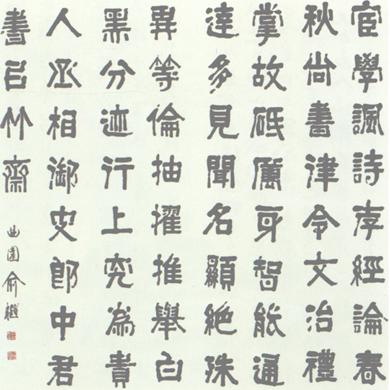 宦學諷詩孝經論春
秋尚書律令文治禮
掌故砥厲身智能通
達多見聞名顯絕殊
異等倫抽擢推舉白
黑分迹行上究為貴
人丞相御史郎中君
書竹齋 曲園俞樾